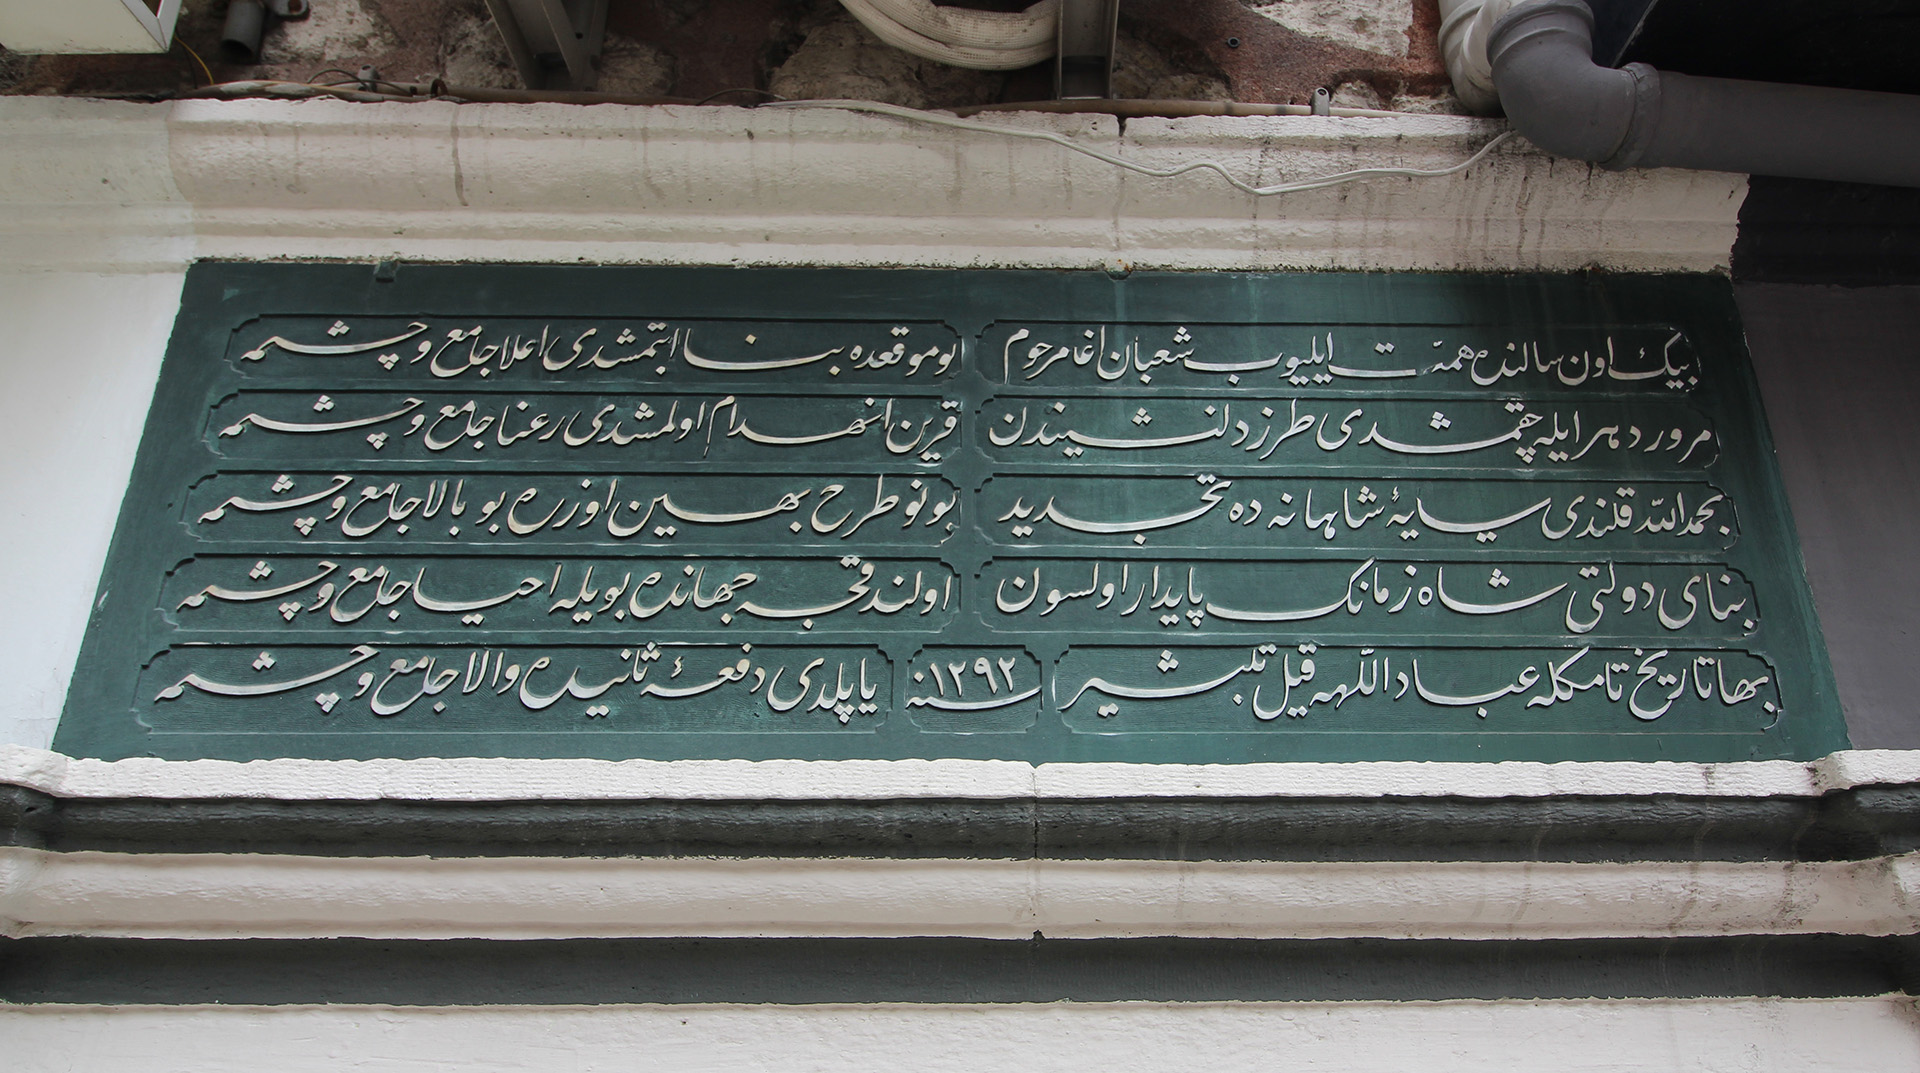 بيك اون سالنده همت ايليوب شعبان اغا مرحوم
بو موقعده بنا ايتمشدى اعلا جامع و چشمه
مرور دهر ايله چقمشدى طرز دلنشيندن
قرين انهدام اولمشدى رعنا جامع و چشمه
بحمد الله قلندى سايۀ شاهانه ده تجديد
بو نو طرح بهين اوزره بو بالا جامع و چشمه
بناى دولتى شاه زمانك پايدار اولسون
اولندقجه جهانده بويله احيا جامع و چشمه
بها تاريخ تامكله عباد اللهه قيل تبشير
سنه ١٢٩٢
ياپلدى دفعۀ ثانيده والا جامع و چشمه